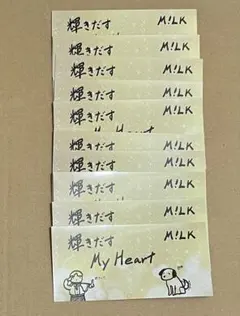 輝きだす M!LK
輝きだす M!LK
輝きだす M!LK
輝きだす M!LK
輝きだす M!LK
My Heart
輝きだす M!LK
輝きだす M!LK
輝きだす M!LK
輝きだす M!LK
輝きだす M!LK
My Heart